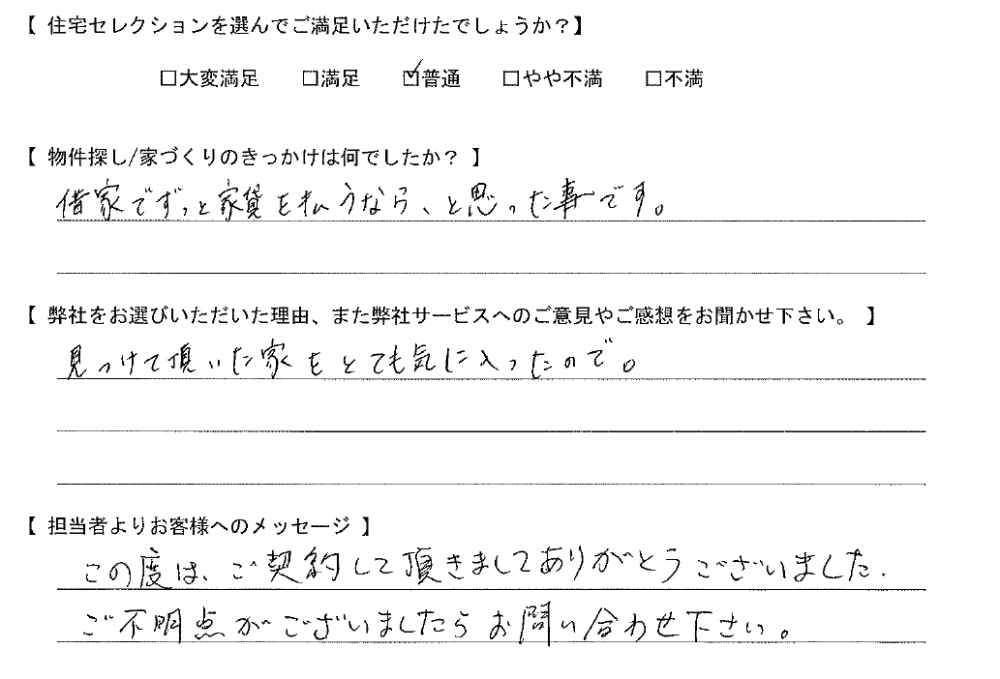 【 住宅セレクションを選んでご満足いただけたでしょうか？】
□大変満足 □満足 ☑普通 □やや不満 □不満
【 物件探し/家づくりのきっかけは何でしたか？ 】
借家でずっと家賃を払うなら、と思った事です。
【 弊社をお選びいただいた理由、また弊社サービスへのご意見やご感想をお聞かせ下さい。 】
見つけて頂いた家をとても気に入ったので。
【 担当者よりお客様へのメッセージ 】
この度は、ご契約して頂きましてありがとうございました.
ご不明点がございましたらお問い合わせ下さい。